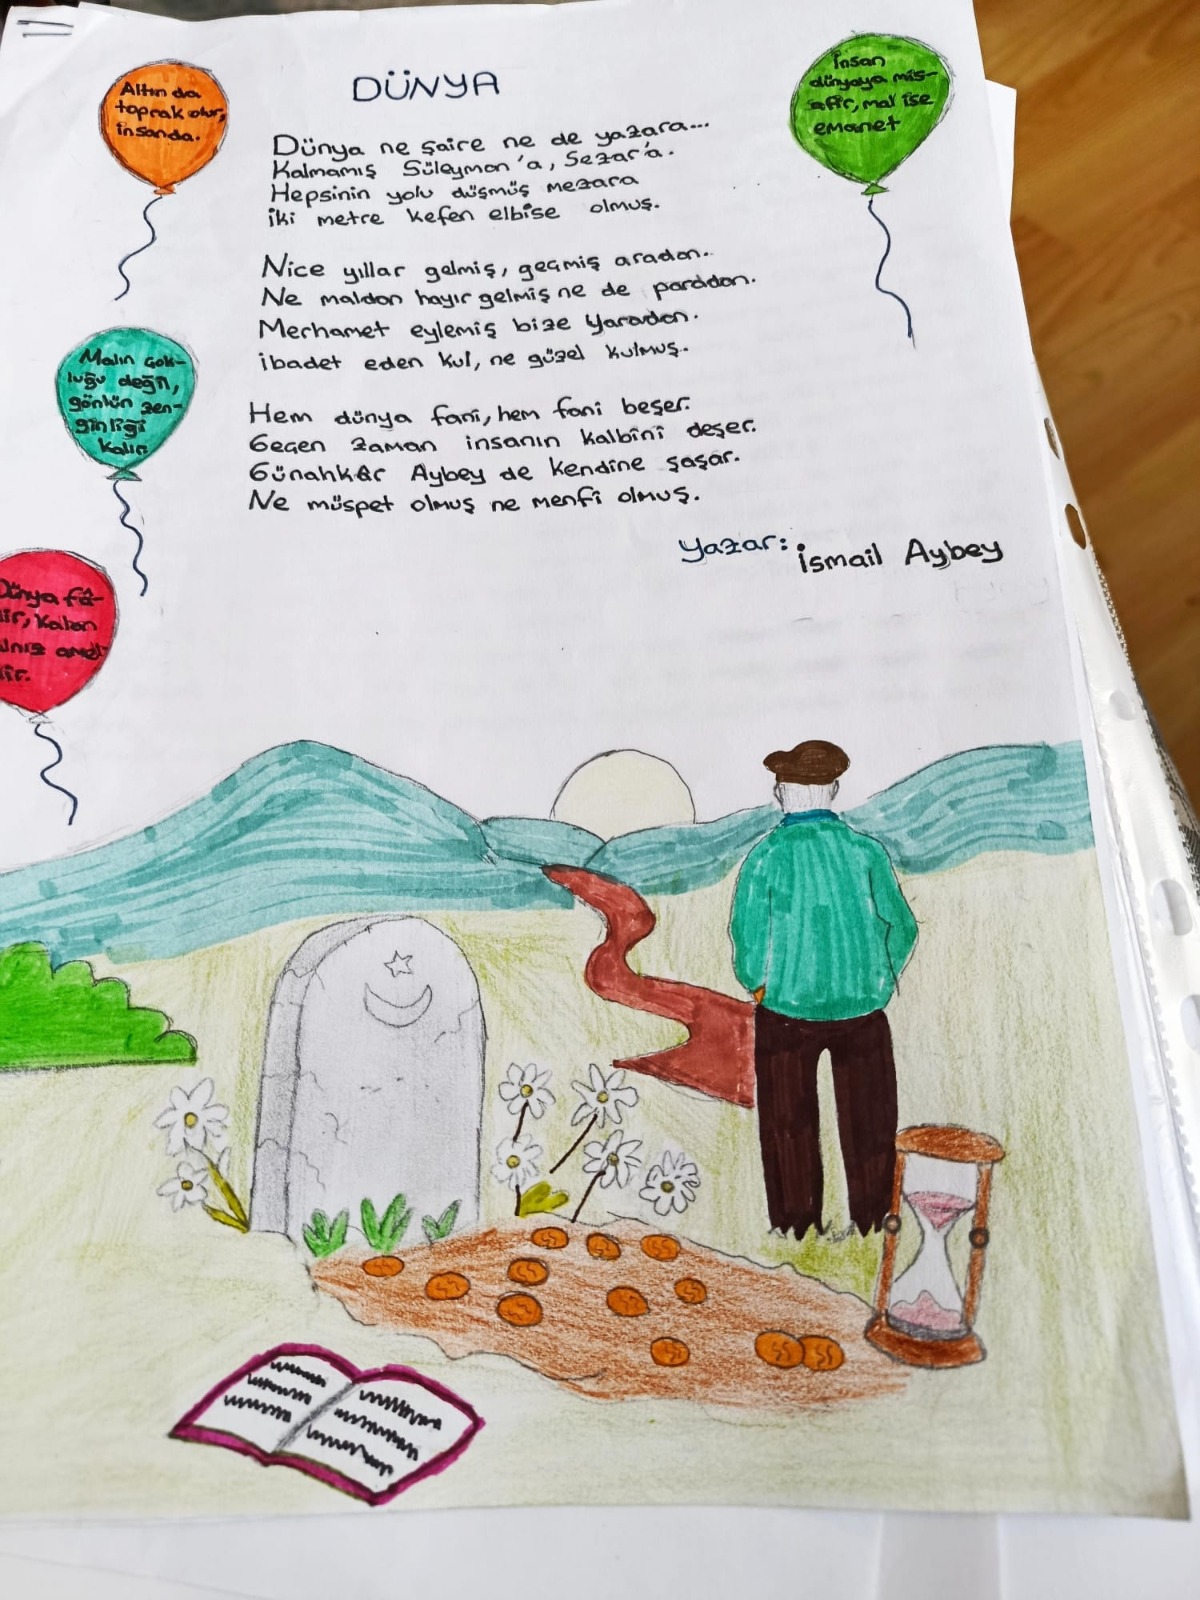 DÜNYA
Dünya ne şaire ne de yazara...
Kalmamış Süleyman'a, Sezar'a.
Hepsinin yolu düşmüş mezara
iki metre kefen elbise olmuş.
Nice yıllar gelmiş, geçmiş aradan..
Ne maldan hayır gelmiş ne de paradan.
Merhamet eylemiş bize Yaradan.
ibadet eden kul, ne güzel kulmuş.
Hem dünya fani, hem fani beşer.
Geçen zaman insanın kalbini deşer.
Günahkâr Aybey de kendine şaşar.
Ne müspet olmuş ne menfi olmuş.
Yazar: İsmail Aybey
Altın da
toprak olur,
insanda.
İnsan
dünyaya mis-
afir, mal ise
emanet
Malın çok-
luğu değil,
gönlün zen-
ginliği
kalır.
Dünya fâ-
dir, kalan
amel
dir.